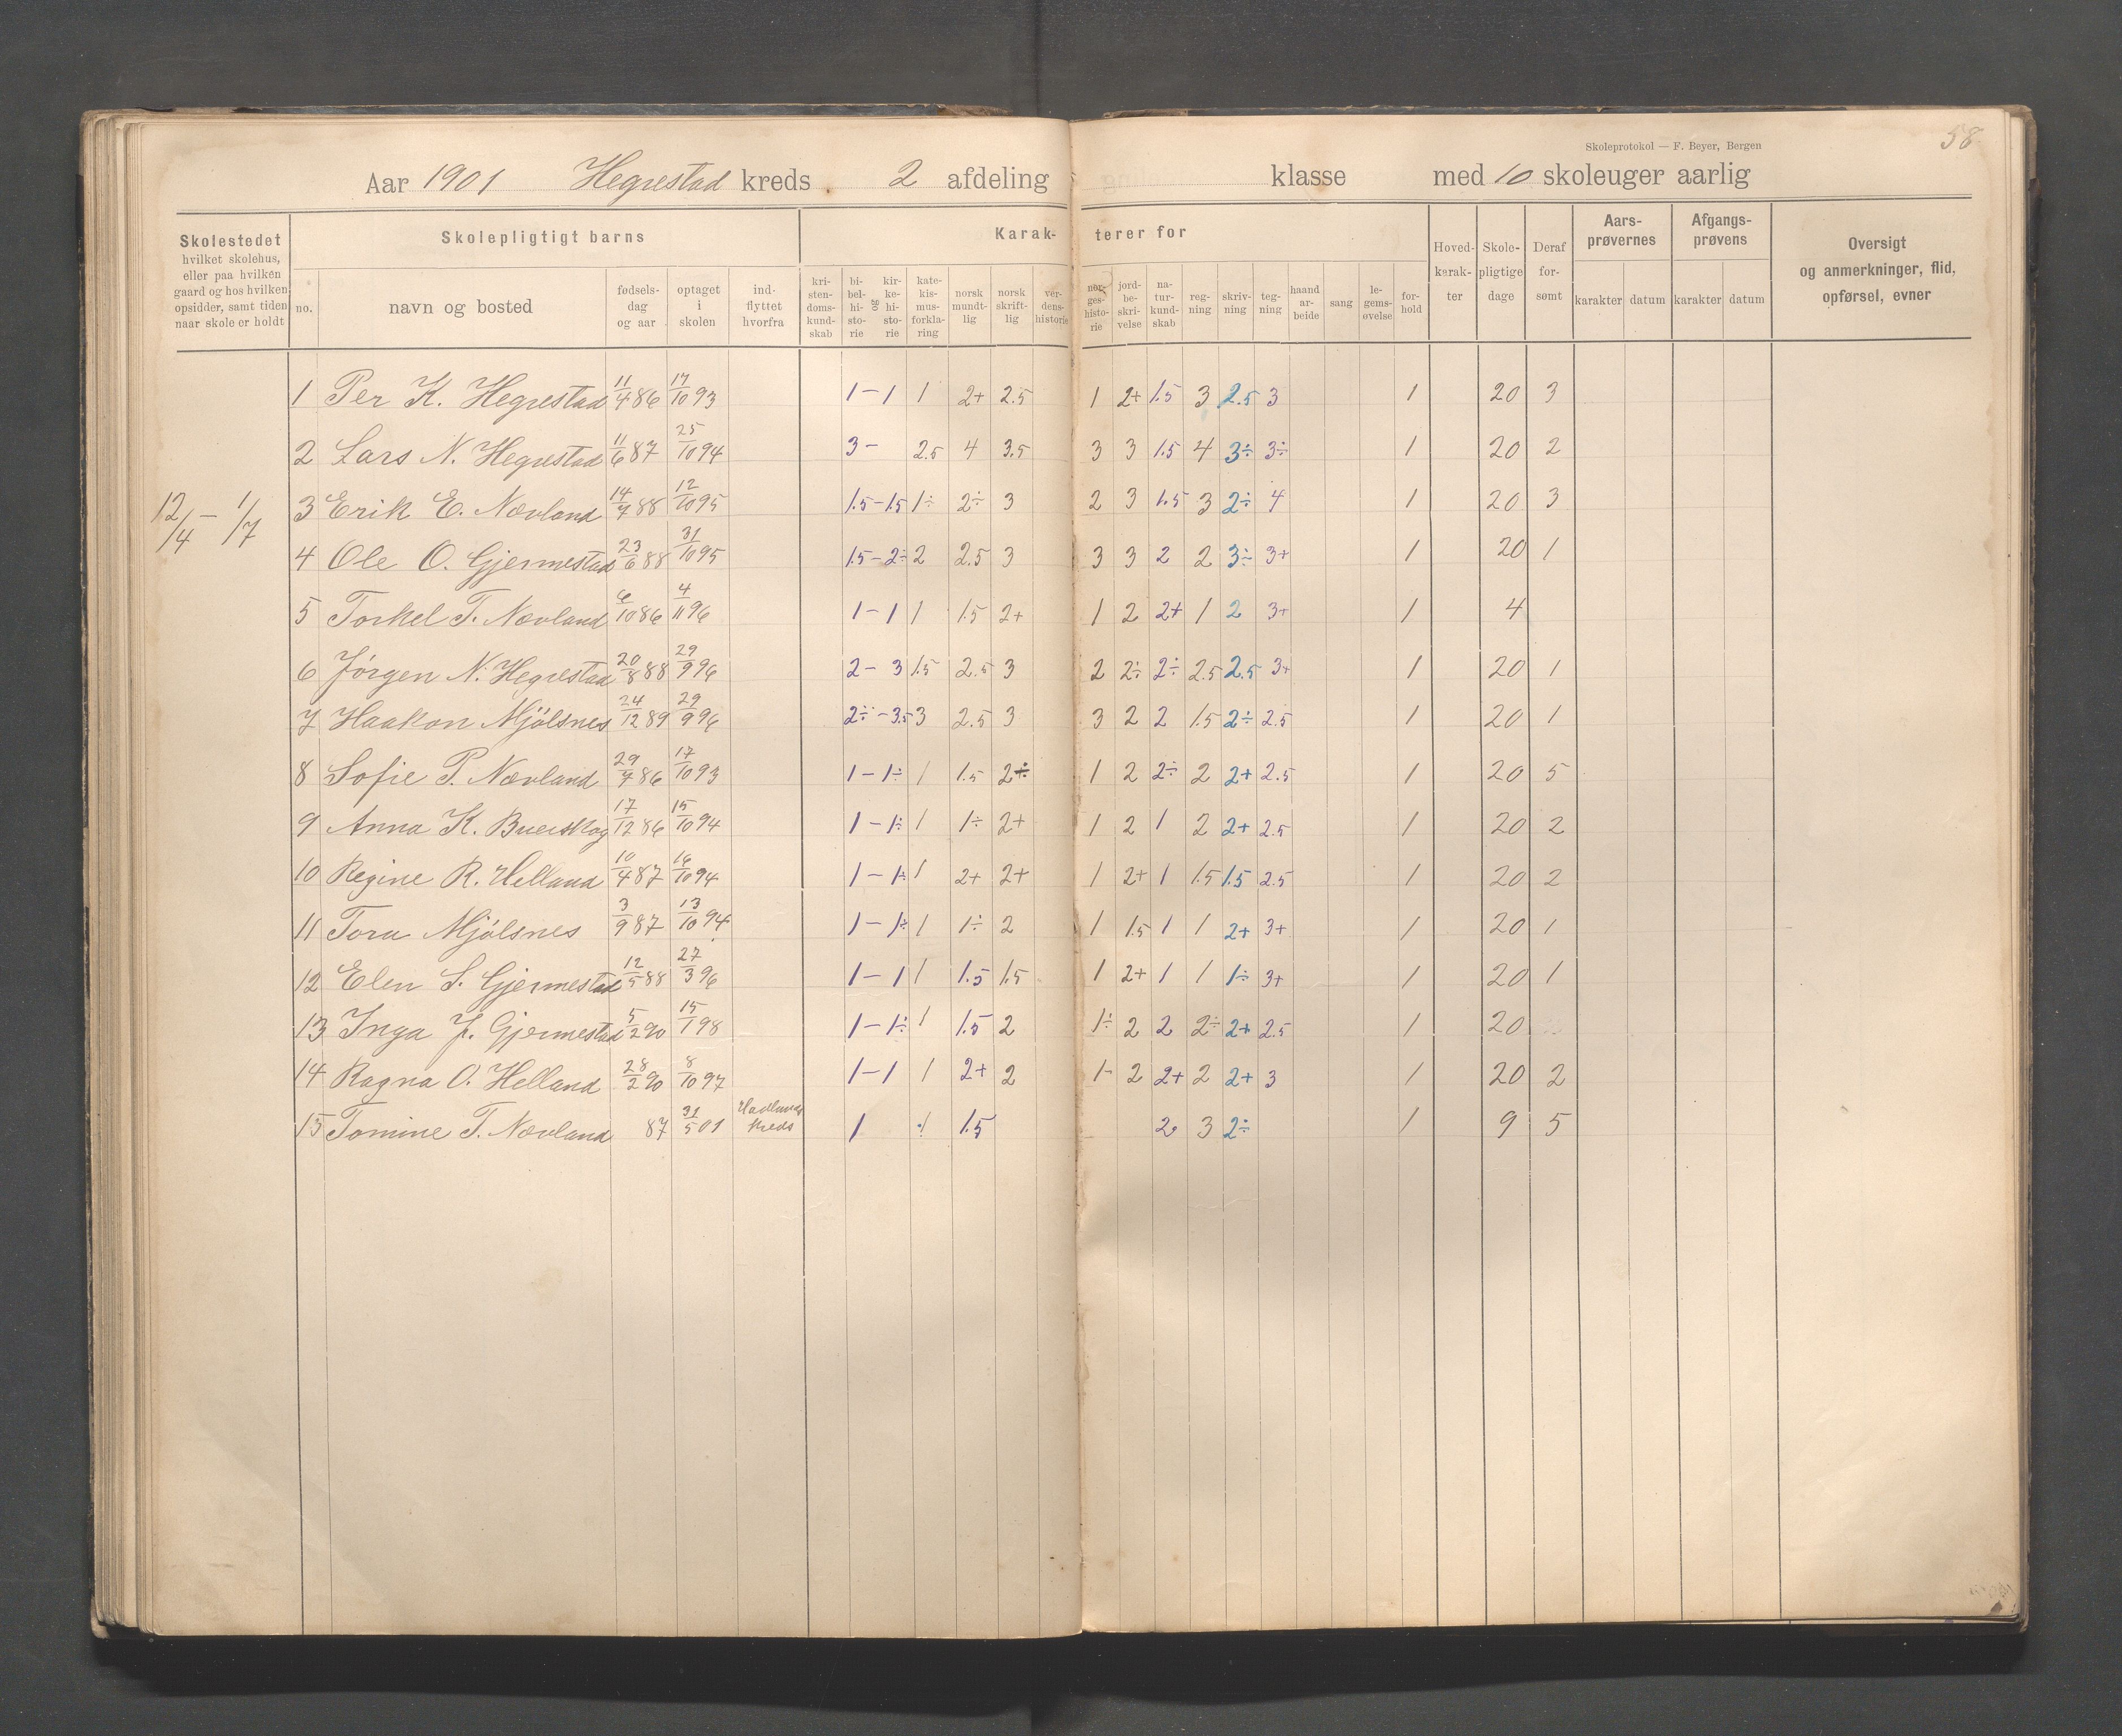 58
Skoleprotokol — F. Beyer, Bergen
Aar 1901 Hegrestad kreds. 2 afdeling klasse med 10 skoleuger aarlig
Skolestedet hvilket skolehus, eller paa hvilken gaard og hos hvilken opsidder, samt tiden naar skole er holdt
Skolepligtigt barns
Karak- terer for
no. navn og bosted fødsels- dag og aar optaget i skolen ind- flyttet hvorfra
kri- sten- doms- kund- skab bi- bel- hi- sto- rie og kir- ke- hi- sto- rie kate- kis- mus- forkla- ring norsk mundt- lig norsk skrift- lig ver- dens- historie
nor- ges- histo- rie jord- be- skri- velse na- tur- kund- skab reg- ning skriv- ning teg- ning haand ar- beide sang le- gems- øvelse for- hold
Hoved- karak- ter Skole- pligtige dage Deraf for- sømt Aars- prøvernes karakter datum Afgangs- prøvens karakter datum
Oversigt og anmerkninger, flid, opførsel, evner
12/4 — 1/7
1 Per K. Hegrestad 11/4 86 17/10 93 1 – 1 1 2+ 2.5 1 2+ 1.5 3 2.5 3 1 20 3
2 Lars N. Hegrestad 11/6 87 25/10 94 3 – 2.5 4 3.5 3 3 1.5 4 3÷ 3÷ 1 20 2
3 Erik E. Nævland 14/7 88 12/10 95 1.5 – 1.5 1÷ 2÷ 3 2 3 1.5 3 2÷ 4 1 20 3
4 Ole O. Gjermestad 23/6 88 31/10 95 1.5 – 2÷ 2 2.5 3 3 3 2 2 3÷ 3+ 1 20 1
5 Torkel T. Nævland 6/10 86 4/11 96 1 – 1 1 1.5 2+ 1 2 2+ 1 2 3+ 1 4
6 Jørgen N. Hegrestad 20/8 88 29/9 96 2 – 3 1.5 2.5 3 2 2÷ 2÷ 2.5 2.5 3+ 1 20 1
7 Haakon Mjølsnes 24/12 89 29/9 96 2÷ – 3.5 3 2.5 3 3 2 2 1.5 2÷ 2.5 1 20 1
8 Sofie P. Nævland 29/7 86 17/10 93 1 – 1÷ 1 1.5 2÷ 1 2 2÷ 2 2+ 2.5 1 20 5
9 Anna K. Buerskog 17/12 86 15/10 94 1 – 1÷ 1 1÷ 2+ 1 2 1 2 2+ 2.5 1 20 2
10 Regine R. Helland 10/4 87 16/10 94 1 – 1÷ 1 2+ 2+ 1 2+ 1 1.5 1.5 2.5 1 20 2
11 Tora Mjølsnes 3/9 87 13/10 94 1 – 1÷ 1 1÷ 2 1 1.5 1 1 2+ 3+ 1 20 1
12 Elen S. Gjermestad 12/5 88 27/3 96 1 – 1 1 1.5 1.5 1 2+ 1 1 1÷ 3+ 1 20 1
13 Inga J. Gjermestad 5/2 90 15/1 98 1 – 1÷ 1 1.5 2 1÷ 2 2 2÷ 2+ 2.5 1 20
14 Ragna O. Helland 28/2 90 8/10 97 1 – 1 1 2+ 2 1- 2 2+ 2 2+ 3 1 20 2
15 Tomine T. Nævland 87 31/5 01 kreds 1 1 1.5 2 3 2÷ 1 9 5